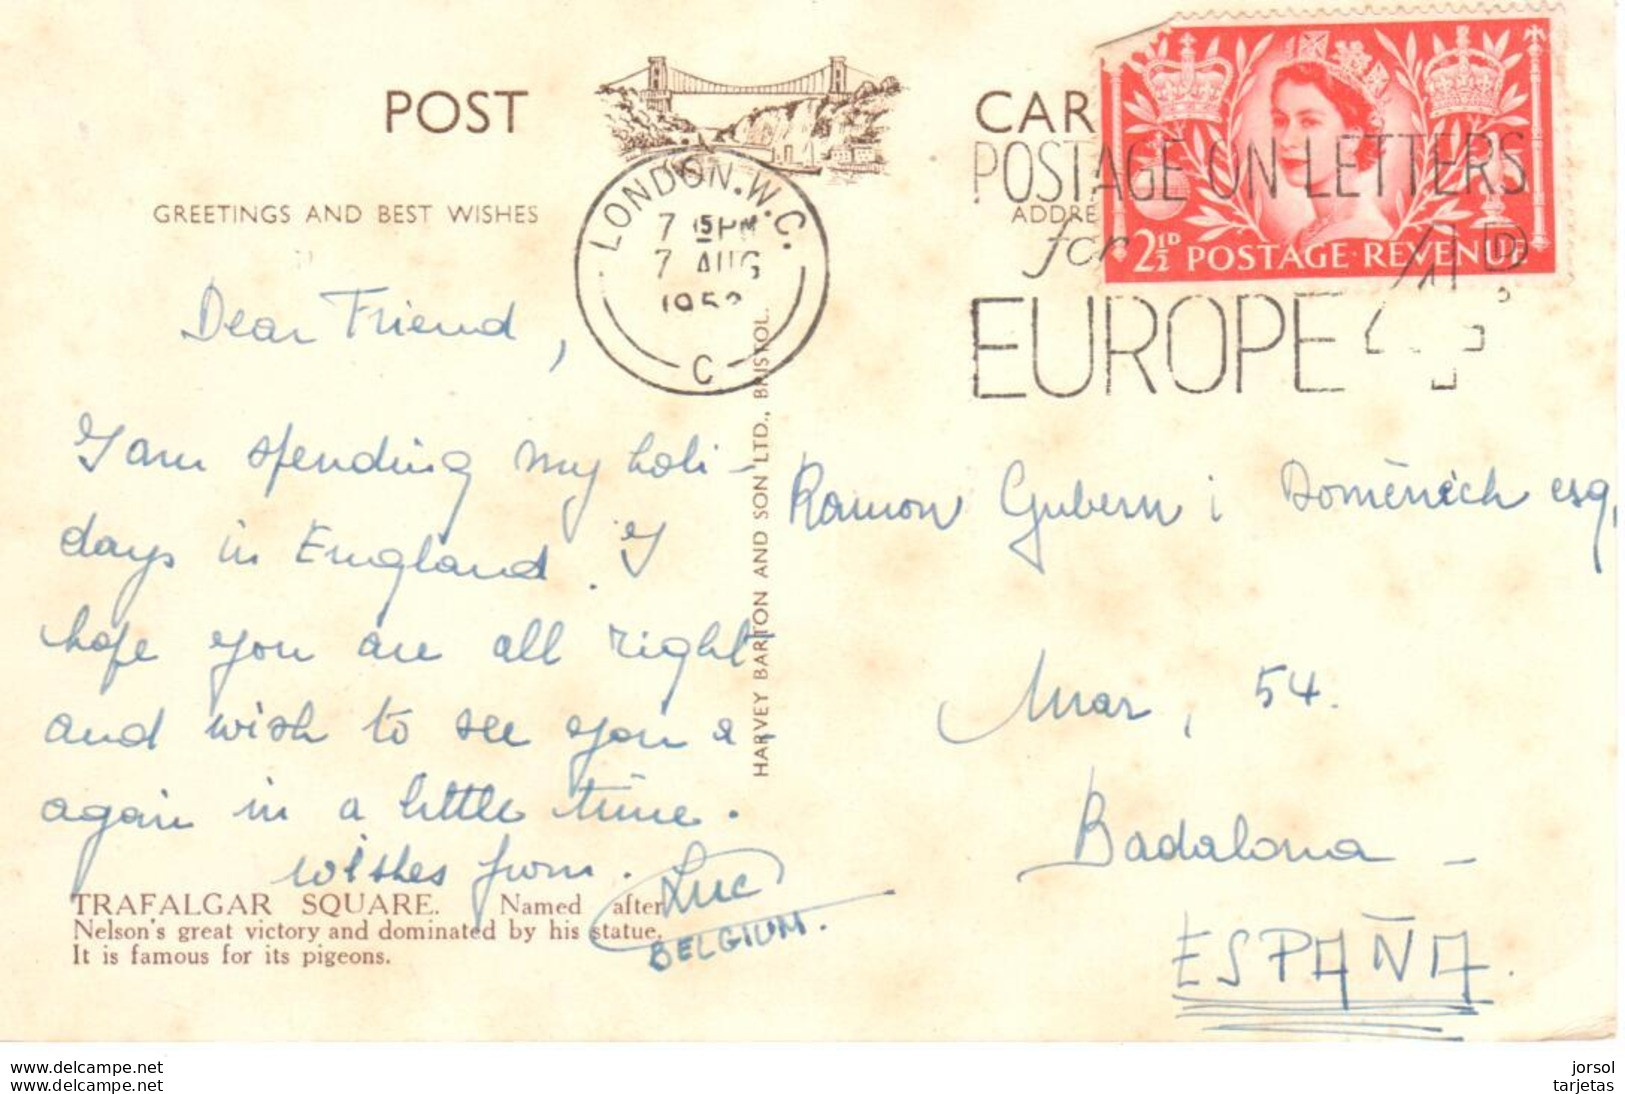 POST CAR
POSTAGE ON LETTERS
for
4½D.
EUROPE
2½D POSTAGE REVENUE
LONDON. W.C.
7 15 PM
7 AUG
195
C
GREETINGS AND BEST WISHES
ADDRE
Dear Friend,
I am spending my holi-
days in England. I
hope you are all right
and wish to see you a-
again in a little time.
wishes from.
Luc
BELGIUM.
TRAFALGAR SQUARE. Named after
Nelson's great victory and dominated by his statue.
It is famous for its pigeons.
HARVEY BARTON AND SON LTD., BRISTOL.
Ramon Gubern i Domènech esq,
Mar, 54.
Badalona -
ESPAÑA.
www.delcampe.net
www.delcampe.net
jorsol
tarjetas